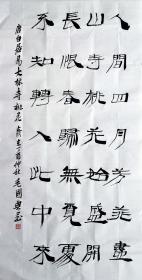 人間四月芳菲盡
山寺桃花始盛開
長恨春歸無覓處
不知轉入此中來
唐白居易大林寺桃花 丁酉仲秋毛國典